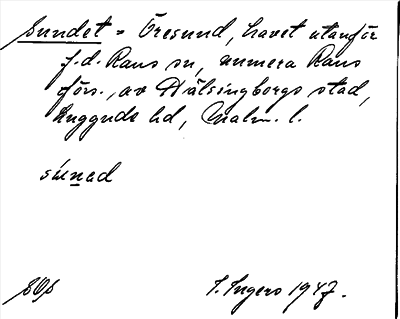 Sundet = Öresund, havet utanför
f.d. Raus sn, numera Raus
förs., av Hälsingborgs stad,
Luggude hd, Malm. l.
súnad
SOS
I. Ingers 1947.